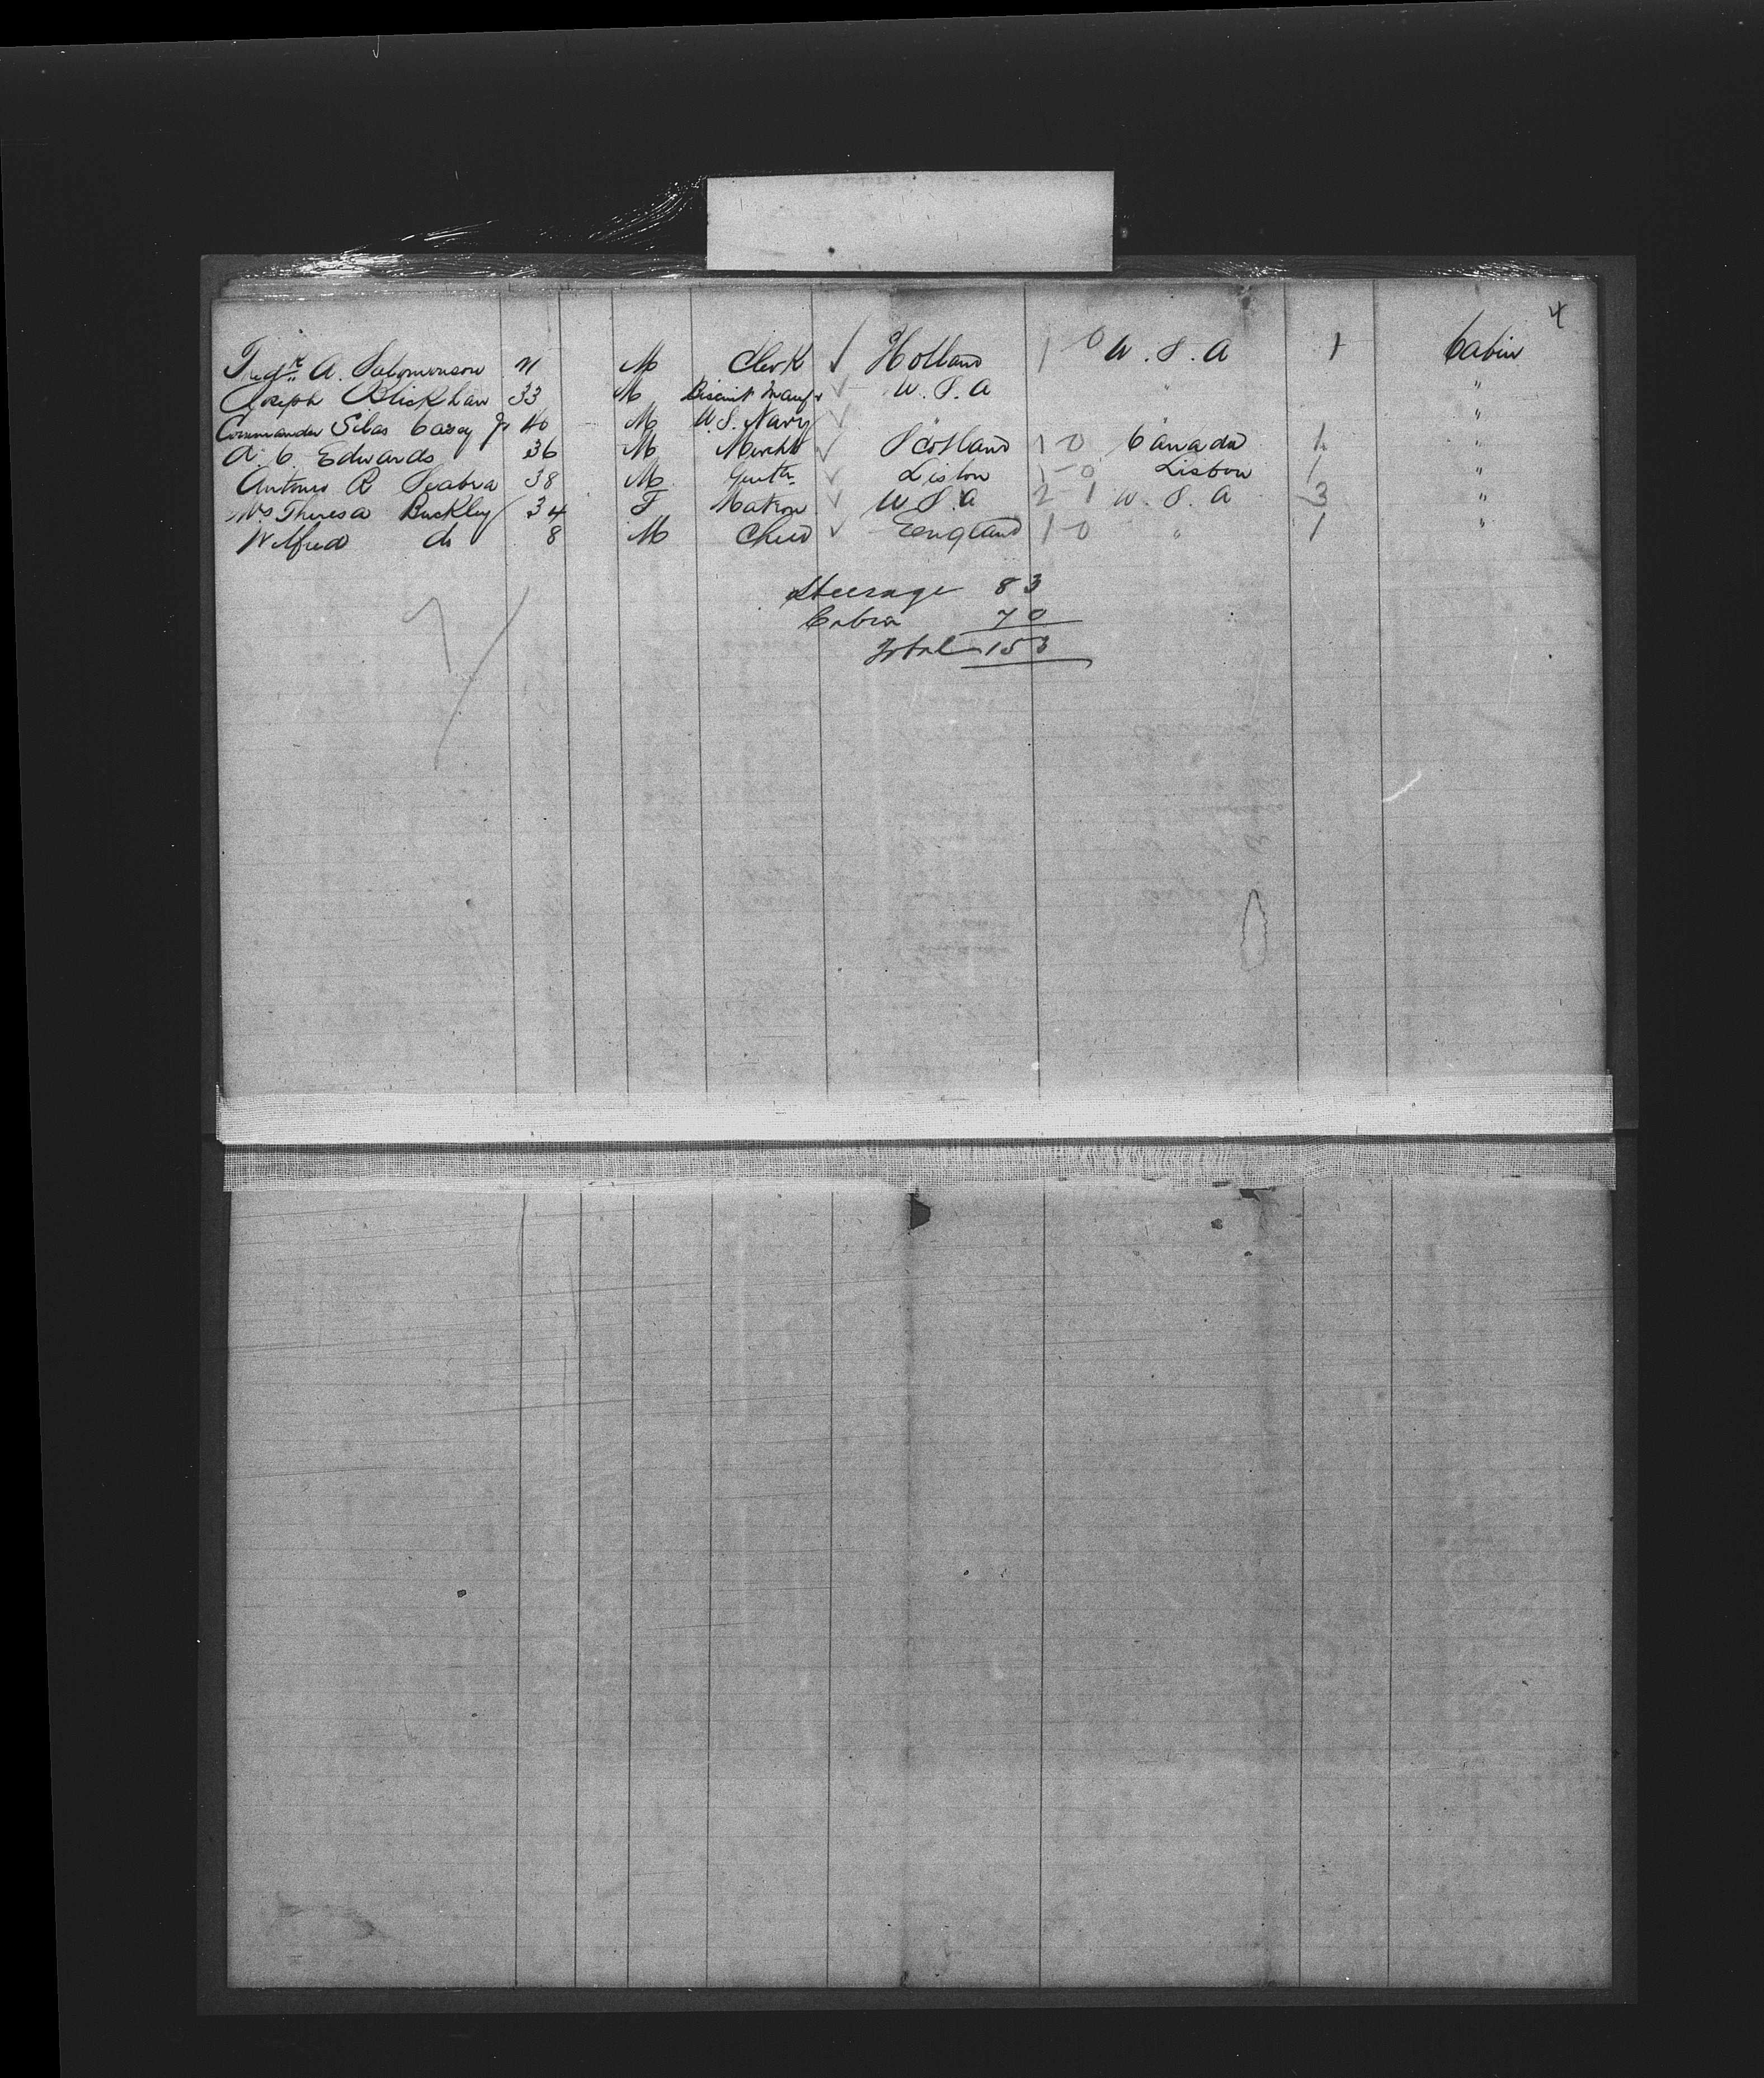 4
Fredk A. Salomonson 21 M Clerk ✓ Holland 1-0 U.S.A 1 Cabin
Joseph Blickhan 33 M Biscuit Manfr ✓ U.S.A " "
Commander Silas Casey Jr 40 M U.S. Navy ✓ " " "
A. C. Edwards 36 M Mercht ✓ Scotland 1-0 Canada 1 "
Antonio R Seabra 38 M Gentn ✓ Lisbon 1-0 Lisbon 1 "
Mrs Theresa Buckley 34 F Matron ✓ U S A 2-1 U.S.A 3 "
Wilfred do 8 M Child ✓ England 1-0 " 1 "
Steerage 83
Cabin 70
Total 153